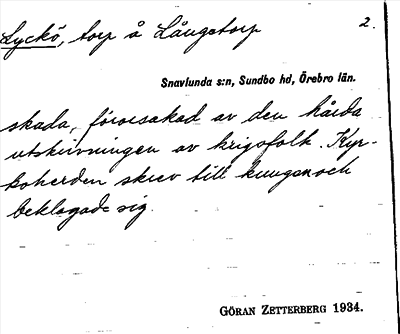 Lyckö, torp å Långetorp 2.
Snavlunda s:n, Sundbo hd, Örebro län.
skada, förorsakad av den hårda
utskrivningen av krigsfolk. Kyr-
koherden skrev till kungen och
beklagade sig.
GÖRAN ZETTERBERG 1934.